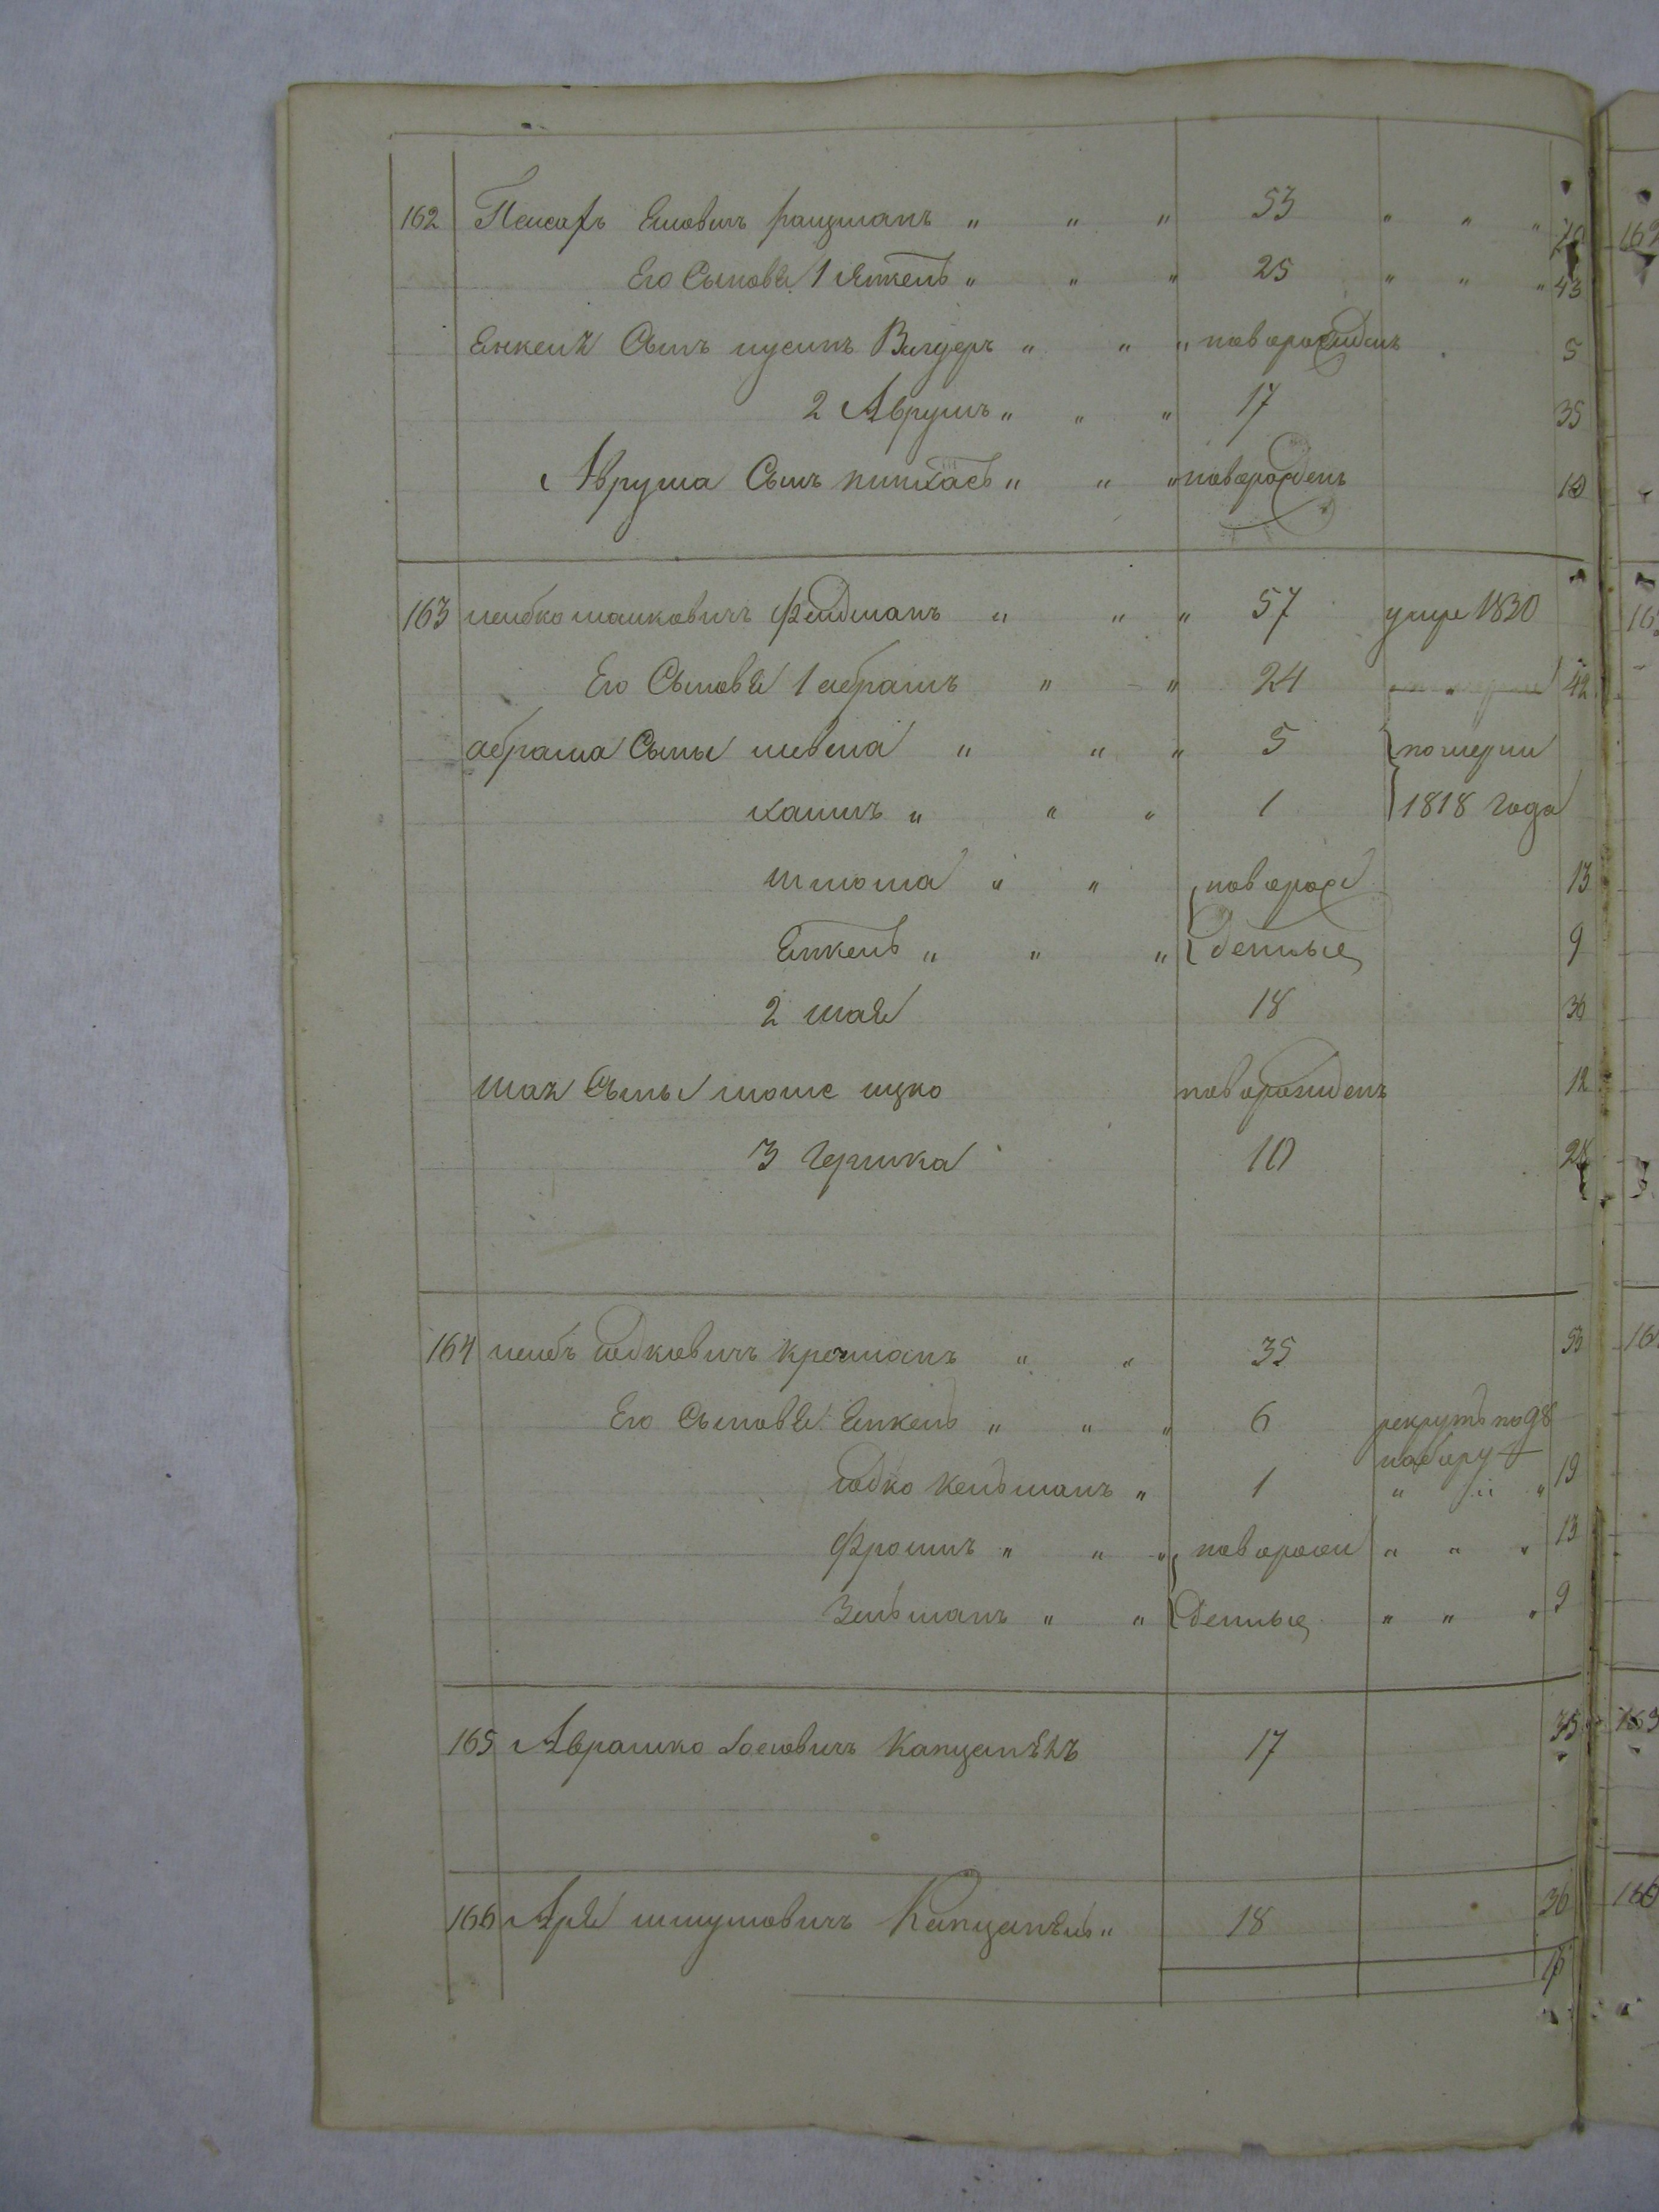 162 Пейсахъ Елiовичъ Рацманъ " " " 53 " " "
Его Сыновья 1 Янкель " " " 25 " " " 43
Янкеля Сынъ нусинъ Вигдеръ " " " новорожденъ 5
2 Аврумъ " " " 17 35
Аврума Сынъ пинхасъ " " " новорожденъ 10
163 лейбко шаиковичъ Фейдманъ " " " 57 умре 1830
Его Сыновья 1 абрамъ " " 24 42
абрама Сыны " " " 5 померли
хаимъ " " " 1 1818 года
шлиома " " новорож 13
Янкель " " " денные 9
2 шая 18 36
шая Сыны мошe ицко новорожденъ 12
3 Гершка 10 28
164 лейбъ иодковичъ крочманъ " " 35 53
Его Сыновья Янкель " " " 6 рекрутъ по 98
набору
иодко кельманъ " 1 " " " 19
Фроимъ " " " новорож " " " 13
Зельманъ " " денные " " " 9
165 Аврашко Iосiовичъ Капцанѣлъ 17 35
166 Аря шмуловичъ Капцанѣль " 18 36